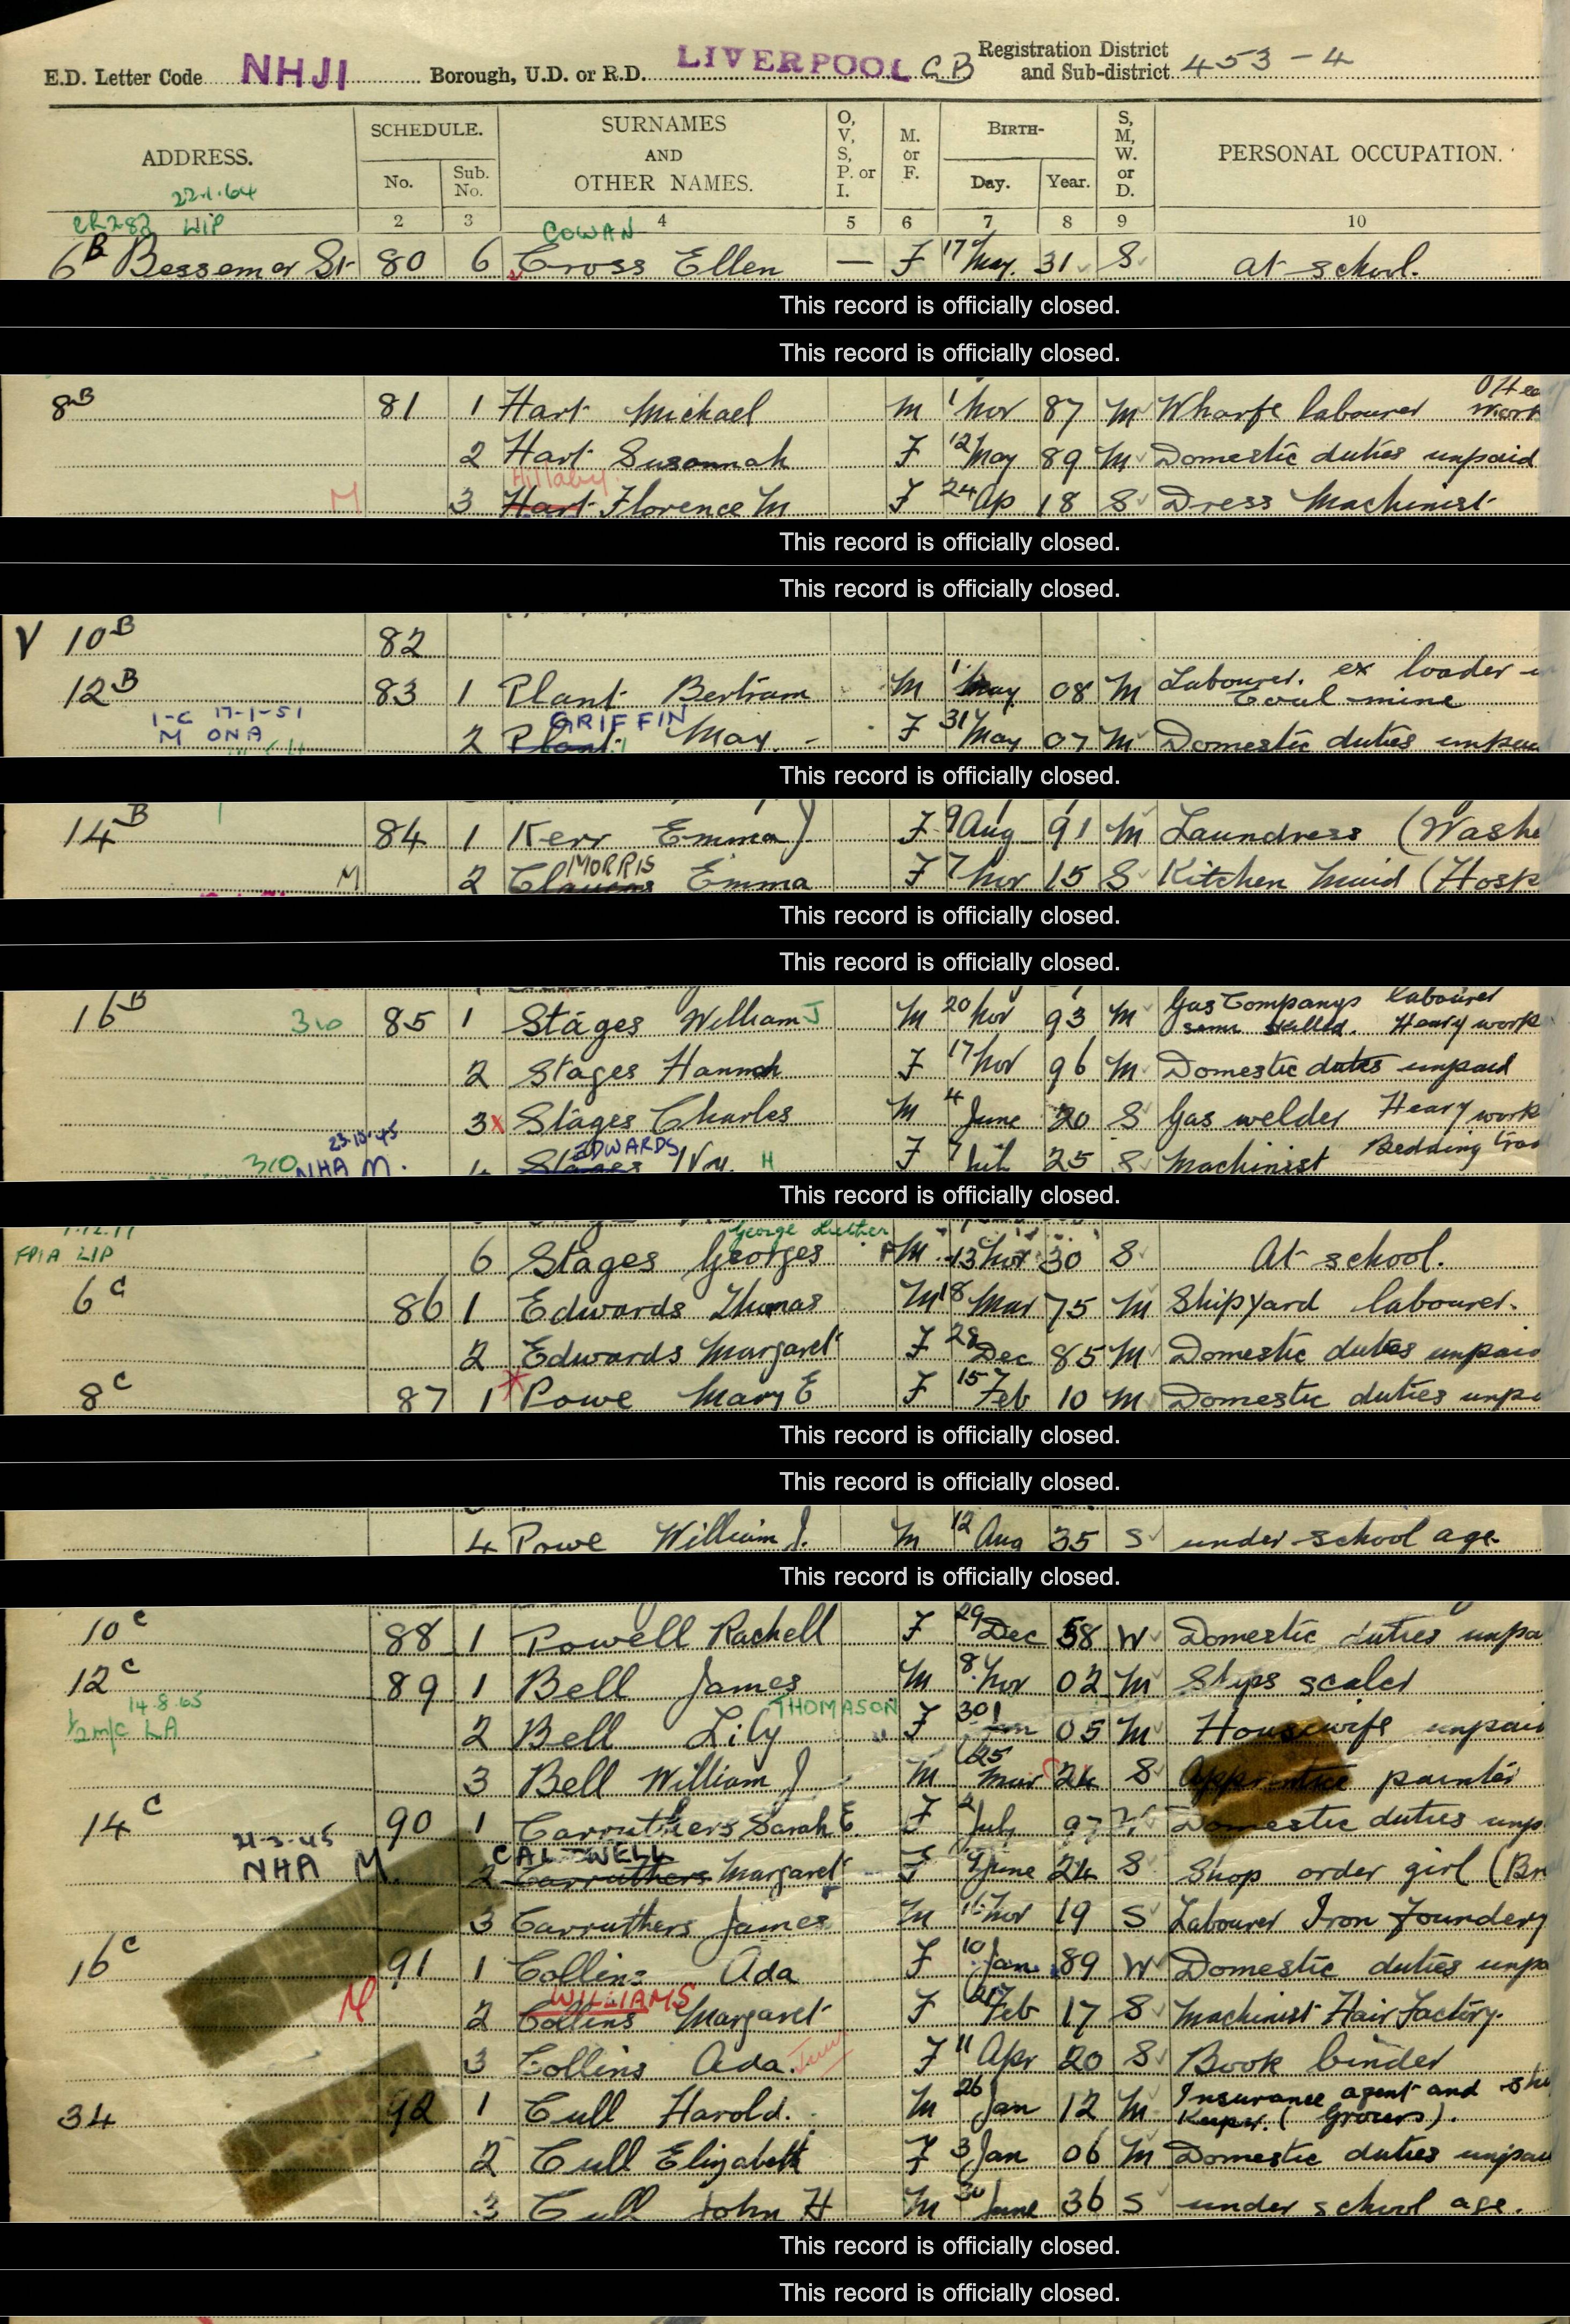 E.D. Letter Code NHJI Borough, U.D. or R.D. LIVERPOOL C.B Registration District and Sub-district 453-4
ADDRESS. SCHEDULE. No. Sub. No. SURNAMES AND OTHER NAMES. O, V, S, P. or I. M. or F. BIRTH- Day. Year. S, M, W. or D. PERSONAL OCCUPATION.
22.1.64
CR283 LIP 2 3 4 5 6 7 8 9 10
COWAN
6B Bessemer St 80 6 Cross Ellen — F 17 May. 31 S at school.
This record is officially closed.
This record is officially closed.
8B 81 1 Hart Michael M 1 Nov 87 M Wharfe labourer
2 Hart Susannah F 12 May 89 M Domestic duties unpaid
Hillaby
M 3 Hart Florence M F 24 Ap 18 S Dress Machinist
This record is officially closed.
This record is officially closed.
V 10B 82
12B 83 1 Plant Bertram M 1 May 08 M Labourer. ex loader
Coal mine
1-C 17-1-51 GRIFFIN
M ONA 2 Plant May. - F 31 May 07 M Domestic duties
This record is officially closed.
14B 84 1 Kerr Emma F 9 Aug 91 M Laundress (Washe
MORRIS
M 2 Emma F 7 Nov 15 S Kitchen Maid (Hosp
This record is officially closed.
This record is officially closed.
16B 310 85 1 Stages William J M 20 Nov 93 M Gas Companys labourer
semi skilled. Heavy work
2 Stages Hannah F 17 Nov 96 M Domestic duties unpaid
3x Stages Charles M 4 June 20 S Gas welder Heavy work
23.10.45 EDWARDS
310 NHA M. 4 Stages H F 7 25 S Machinist Bedding
This record is officially closed.
George Luther
FPIA LIP 6 Stages Georges M 13 Nov 30 S At school.
6C 86 1 Edwards Thomas M 18 Mar 75 M Shipyard labourer.
2 Edwards Margaret F 28 Dec 85 M Domestic duties unpaid
8C 87 1 Powe Mary E F 15 Feb 10 M Domestic duties unpa
This record is officially closed.
This record is officially closed.
4 Powe William J. M 12 Aug 35 S under school age.
This record is officially closed.
10C 88 1 Powell Rachell F 29 Dec 58 W Domestic duties unpa
12C 89 1 Bell James M 8 Nov 02 M Ships scaler
14.8.65 THOMASON
LA 2 Bell Lily F 30 05 M Housewife unpaid
3 Bell William J M 25 Mar 24 S Apprentice painter
14C 90 1 Carruthers Sarah E. F 2 July 97 Domestic duties unp
21-3-45 CALDWELL
NHA M. 2 Carruthers Margaret F 9 June 24 S Shop order girl (Br
3 Carruthers James M 16 Nov 19 S Labourer Iron Foundery
16C 91 1 Collins Ada F 10 Jan 89 W Domestic duties unpa
WILLIAMS
M 2 Collins Margaret F Feb 17 S Machinist Hair Factory.
3 Collins Ada. F 11 Apr 20 S Book binder
34 92 1 Cull Harold. M 26 Jan 12 M Insurance agent and
Keeper. (Grocers).
2 Cull Elizabeth F 3 Jan 06 M Domestic duties unpaid
3 Cull John H M 30 June 36 S under school age.
This record is officially closed.
This record is officially closed.